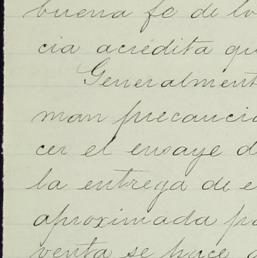 buena fe de lo
cia acredita qu
Generalment
man precaucio
cer el ensaye d
la entrega de e
aproximada pa
venta se hace